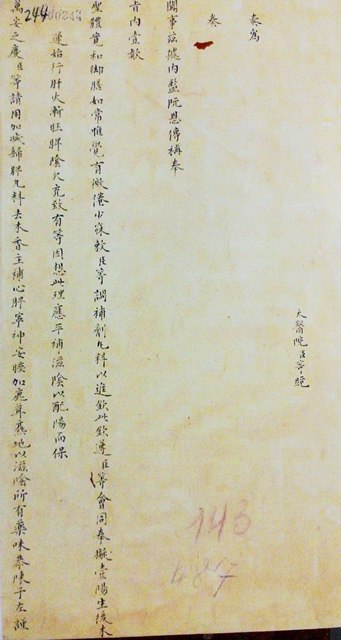 太醫院臣等跪
奏為
奏
聞事茲據内監阮恩傳稱奉
旨内壹款
聖體寬和御膳如常惟覺有微倦少寐敕臣等調補劑丸料以進欽此欽遵臣等會同奉擬壹陽生後木
運始行肝火漸旺脾陰欠充致有等因想此理應平補滋陰以配陽而保
萬安之慶臣等請用加減歸脾丸料去木香主補心脾寧神安睡加鹿茸熟地以滋陰所有藥味恭陳于左謹
244
143
487